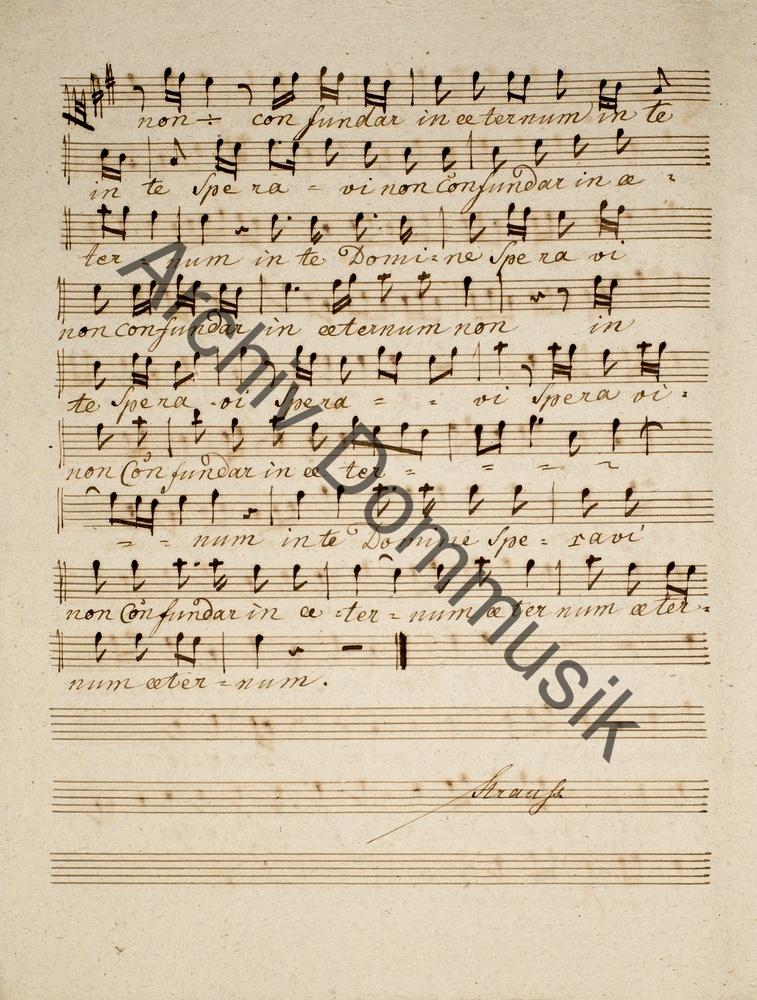 non ÷ con fundar in æ ternum in te
in te Spe ra - vi non Confundar in æ -
ter - num in te Domi = ne Spe ra vi
non confundar in æternum non in
te Spera - vi Spera = - vi Spera vi -
non Confundar in æ ter - = - ~
= - num in te Domine Spe = ravi
non Confundar in æ - ter = num æ ter num æter =
num æter = num.
Strauss
Archiv Dommusik